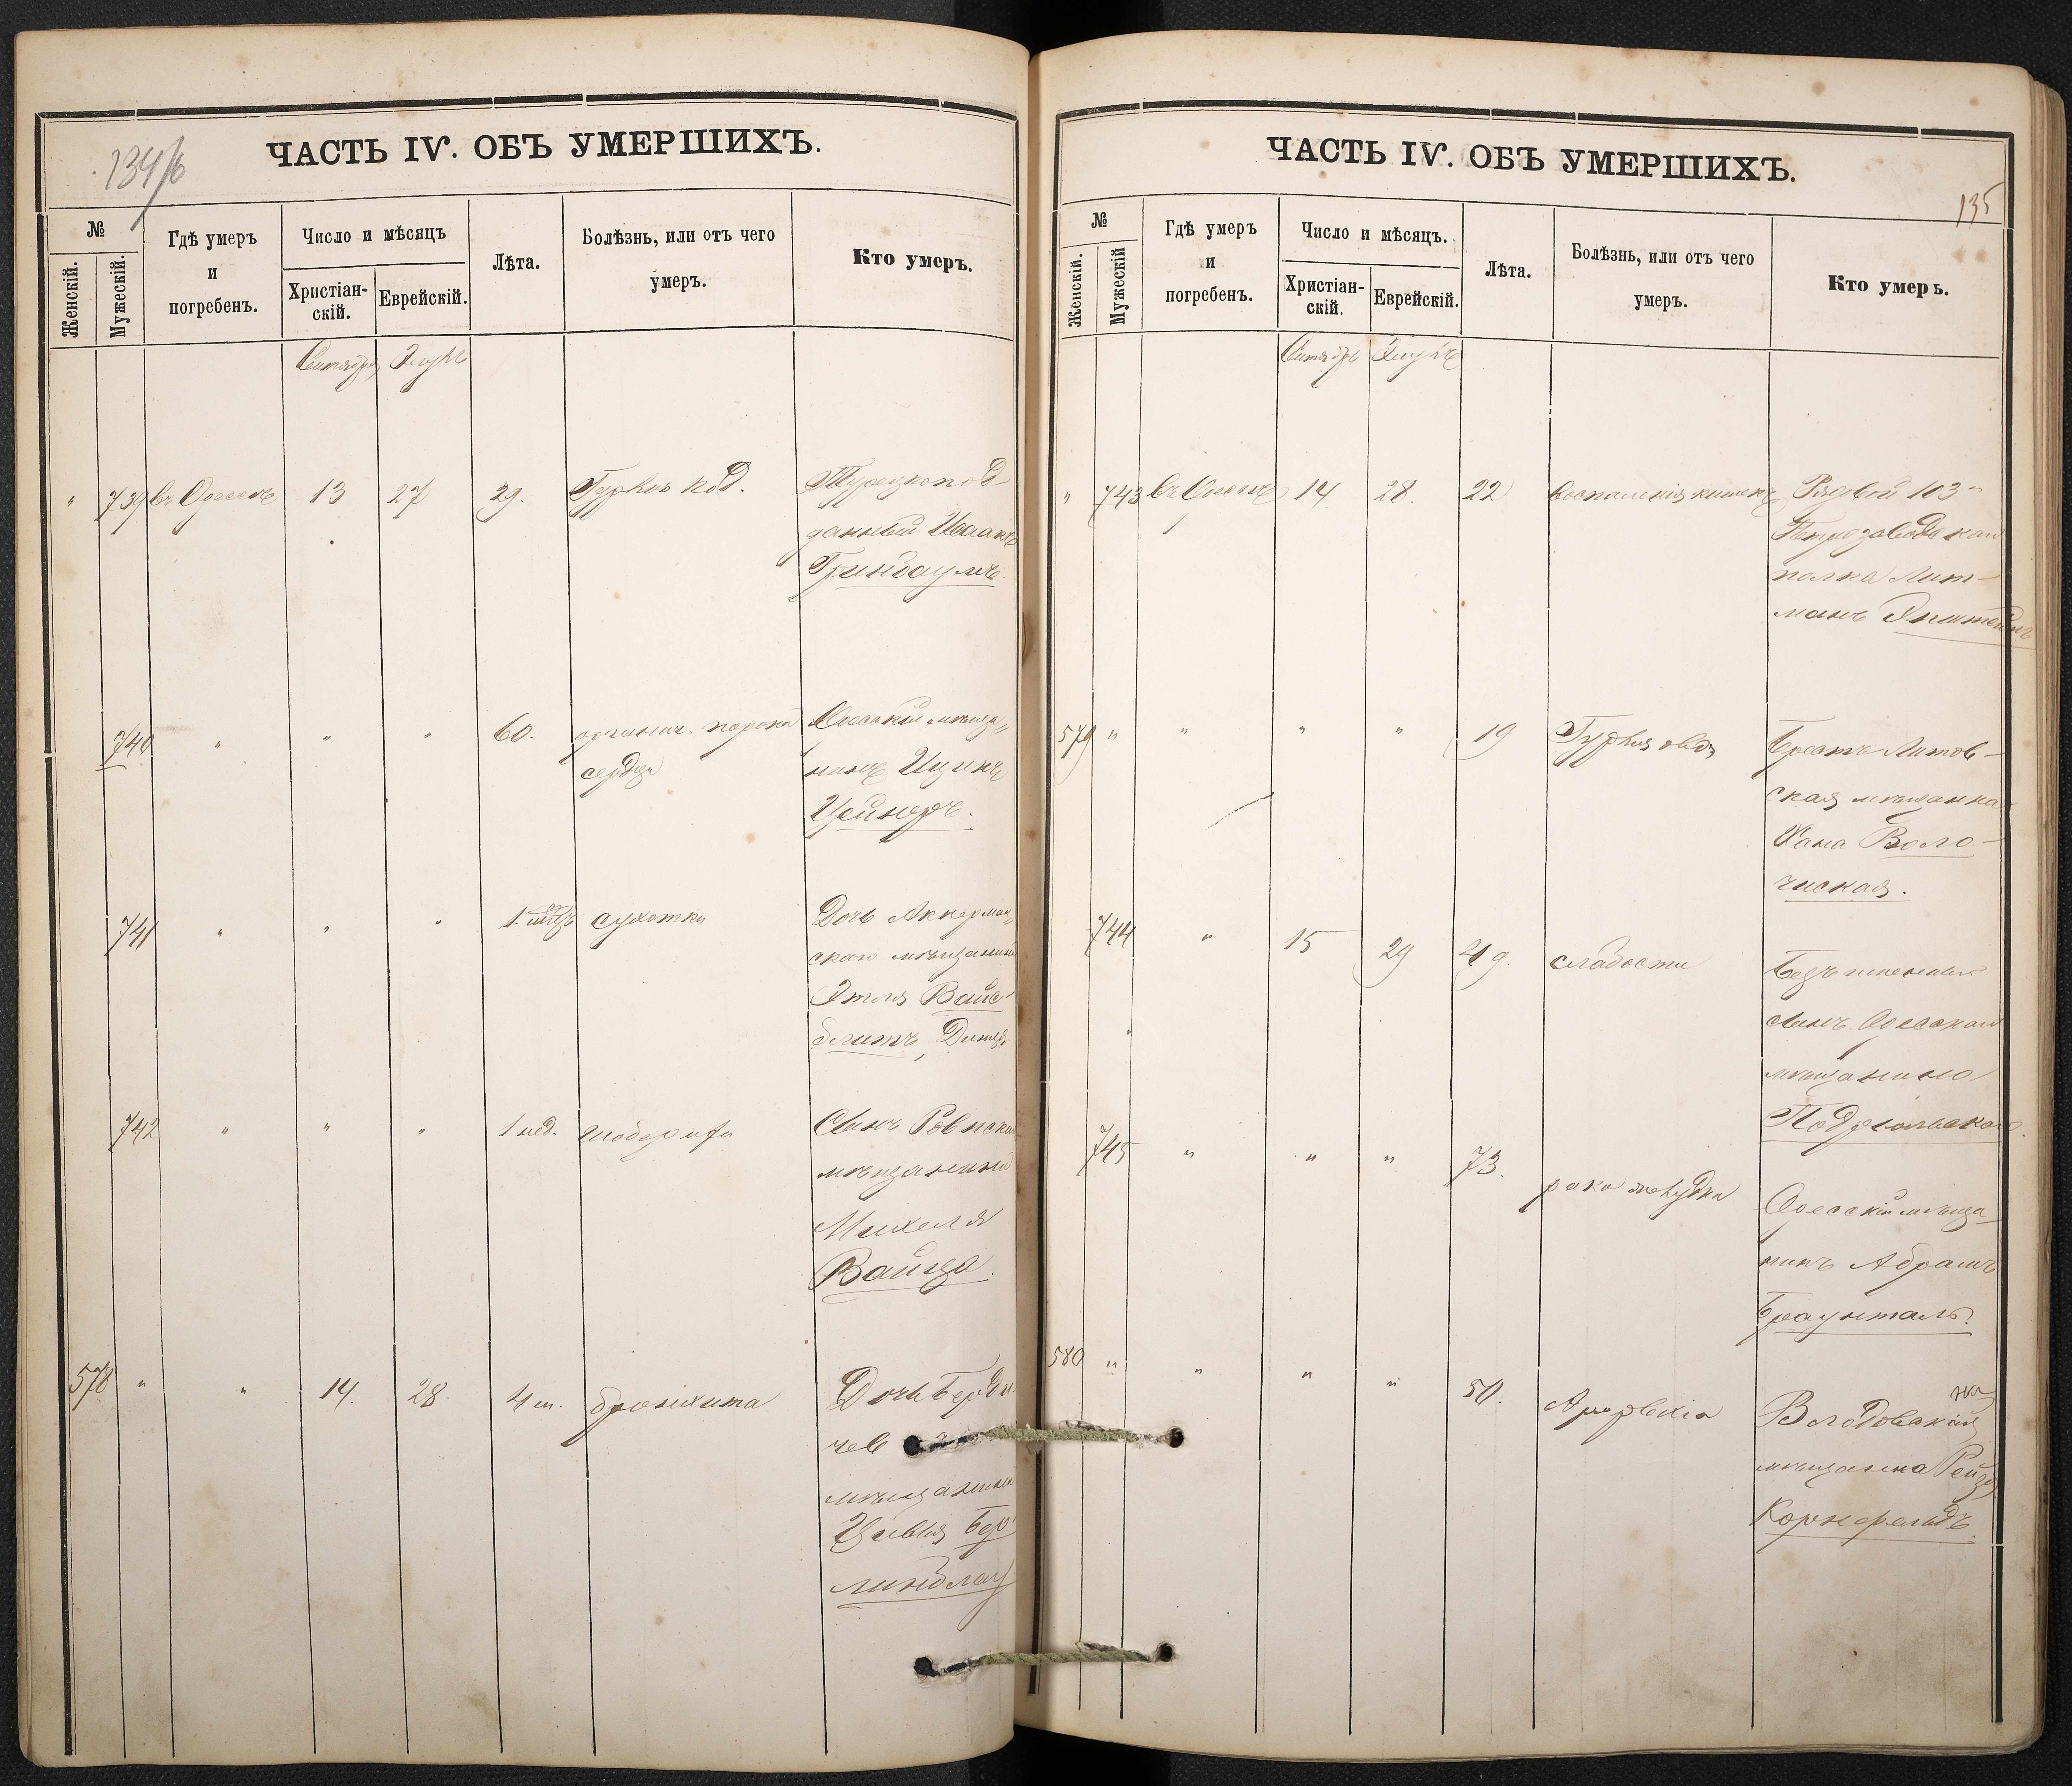 134/б
ЧАСТЬ IV. ОБЪ УМЕРШИХЪ.
№
Женскій.
Мужескій.
Гдѣ умеръ
и
погребенъ.
Число и мѣсяцъ
Христіан-
скій.
Еврейскій.
Лѣта.
Болѣзнь, или отъ чего
умеръ.
Кто умеръ.
Сентябрь Элулъ
" 739 въ Одессѣ 13 27 29. Турецкопод-
данный Исаакъ
Гринбаумъ.
740 " " " 60. органич. порока Одесскій мѣща-
сердца нинъ Ицикъ
Цейнеръ.
741 " " " 1. сухотки Дочь Аккерман-
скаго мѣщанина
Этля Вайс-
блитъ,
742 " " " 1 нед. Сынъ Ровнска
мѣщанина
Михеля
Вайнца.
578 " " 14. 28. 4 м. бронхита Дочь Берди
чев
мѣщанина
Цивья Бер
линблау
135
ЧАСТЬ IV. ОБЪ УМЕРШИХЪ.
№
Женскій.
Мужескій
Гдѣ умеръ
и
погребенъ.
Число и мѣсяцъ.
Христіан-
скій.
Еврейскій.
Лѣта.
Болѣзнь, или отъ чего
умеръ.
Кто умеръ.
Сентябрь Элулъ
" 743 въ Одессѣ 14. 28. 22 воспаленія кишекъ Рядовой 103
Петрозаводскаго
полка Лит-
манъ Эпштейнъ
579 " " " " 19 Брестъ Литов-
ская мѣщанка
Хана Воло-
чиская.
744 " 15 29 слабости Безъименный
сынъ Одесскаго
мѣщанина
Подгольскаго.
745 " " " 73. рака желудка Одесскій мѣща-
нинъ Абрамъ
Браунталь.
580 " " " " 50.
мѣщанка Рейзя
Корнфельдъ.